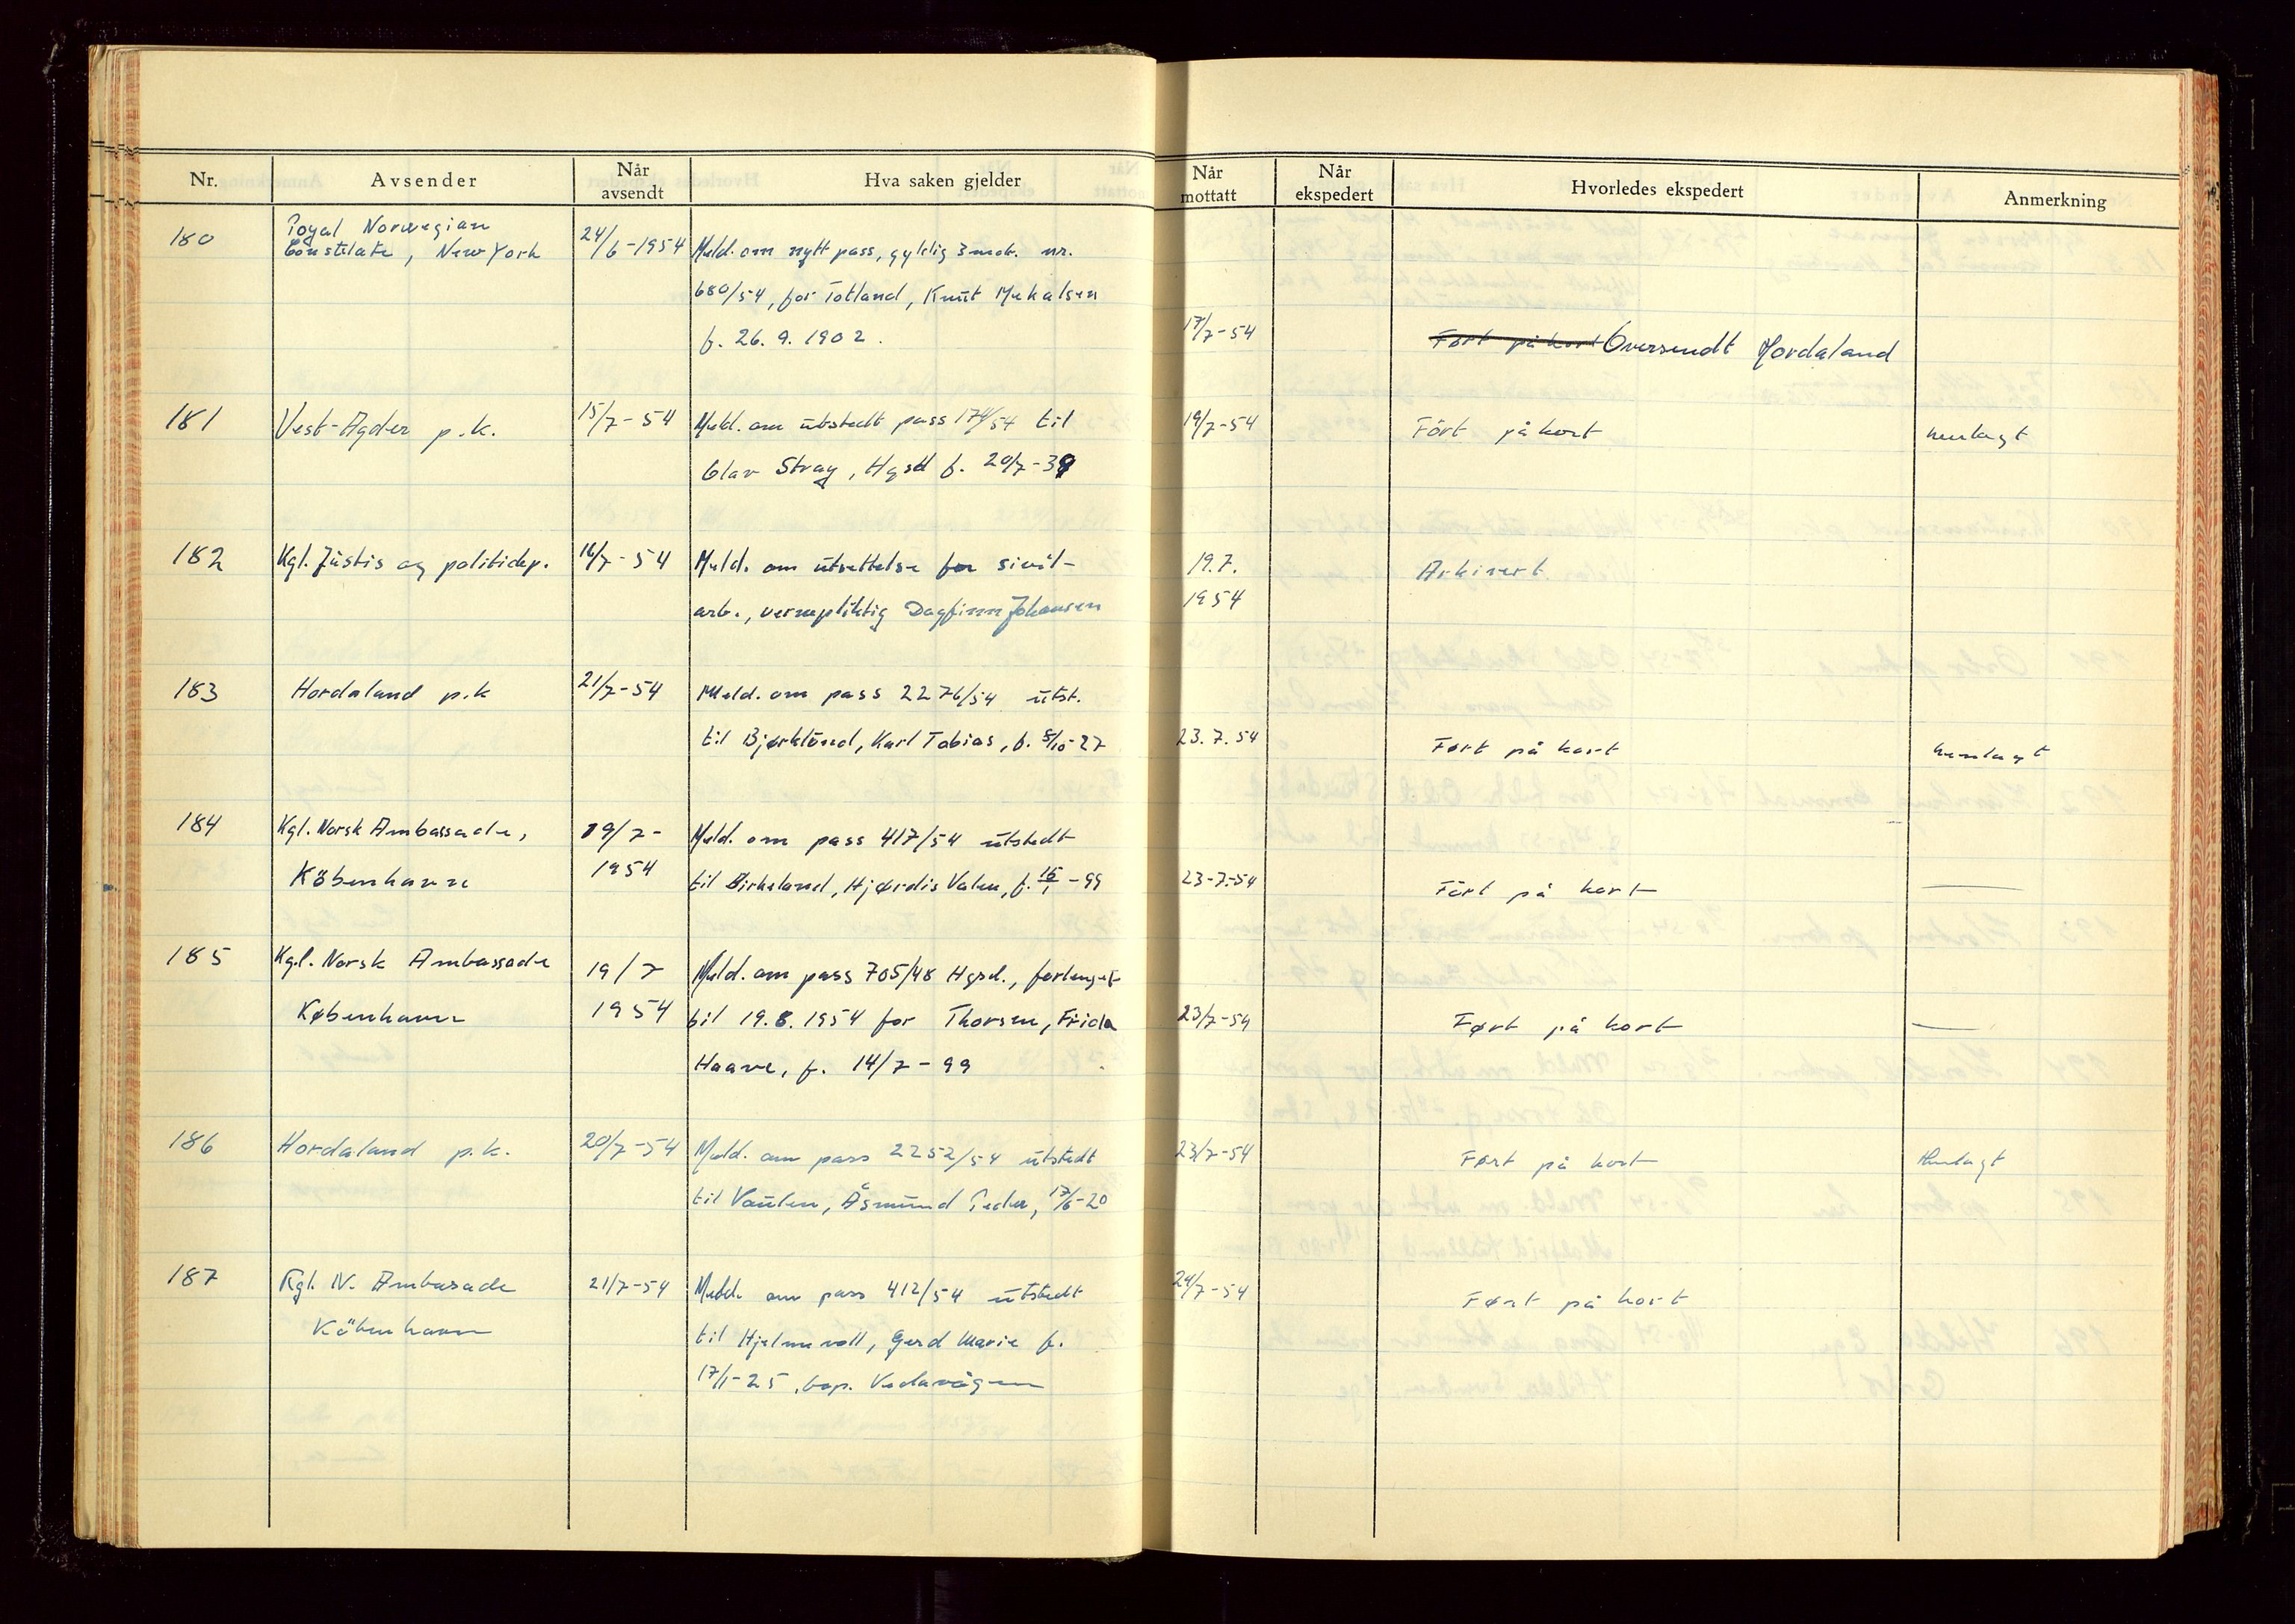 Nr.
Avsender
Når avsendt
Hva saken gjelder
Når mottatt
Når ekspedert
Hvorledes ekspedert
Anmerkning
180
Royal Norwegian
Consulate, New York
24/6-1954
Meld. om nytt pass, gyldig 3 mdr. nr.
680/54, for Totland, Knut Mikalsen
f. 26. 9. 1902.
17/7-54
Ført på kort Oversendt Hordaland
181
Vest-Agder p.k.
15/7-54
Meld. om utstedt pass 174/54 til
Olav Stray, Hgsd f. 20/7-39
19/7-54
Fört på kort
henlagt
182
Kgl. Justis og politidep.
16/7-54
Meld. om utsettelse for sivil-
arb., vernepliktig Dagfinn Johansen
19.7.
1954
Arkivert.
183
Hordaland p.k
21/7-54
Meld. om pass 2276/54 utst.
til Bjørklund, Karl Tobias, f. 5/10-27
23.7.54
Ført på kort
henlagt
184
Kgl. Norsk Ambassade,
Köbenhavn
19/7-
1954
Meld. om pass 417/54 utstedt
til Birkeland, Hjørdis Valen, f. 15/1-99
23-7-54
Fört på kort
185
Kgl. Norsk Ambassade
København
19/7
1954
Meld. om pass 705/48 Hgsd., forlenget
til 19.8.1954 for Thorsen, Frida
Haave, f. 14/7-99
23/7-54
Ført på kort
186
Hordaland p.k.
20/7-54
Meld. om pass 2252/54 utstedt
til Vaulen, Åsmund Peder, 17/6-20
23/7-54
Ført på kort
Henlagt
187
Kgl. N. Ambasade
Köbenhavn
21/7-54
Meld. om pass 412/54 utstedt
til Hjelmevoll, Gerd Marie f.
17/1-25, bop. Vedavågen
24/7-54
Ført på kort